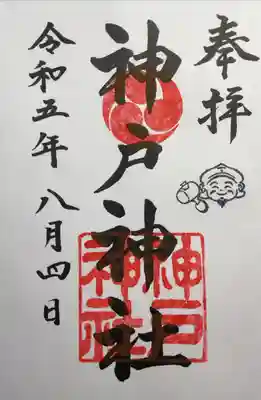 奉拝
神戸神社
令和五年八月四日
神戸
神社